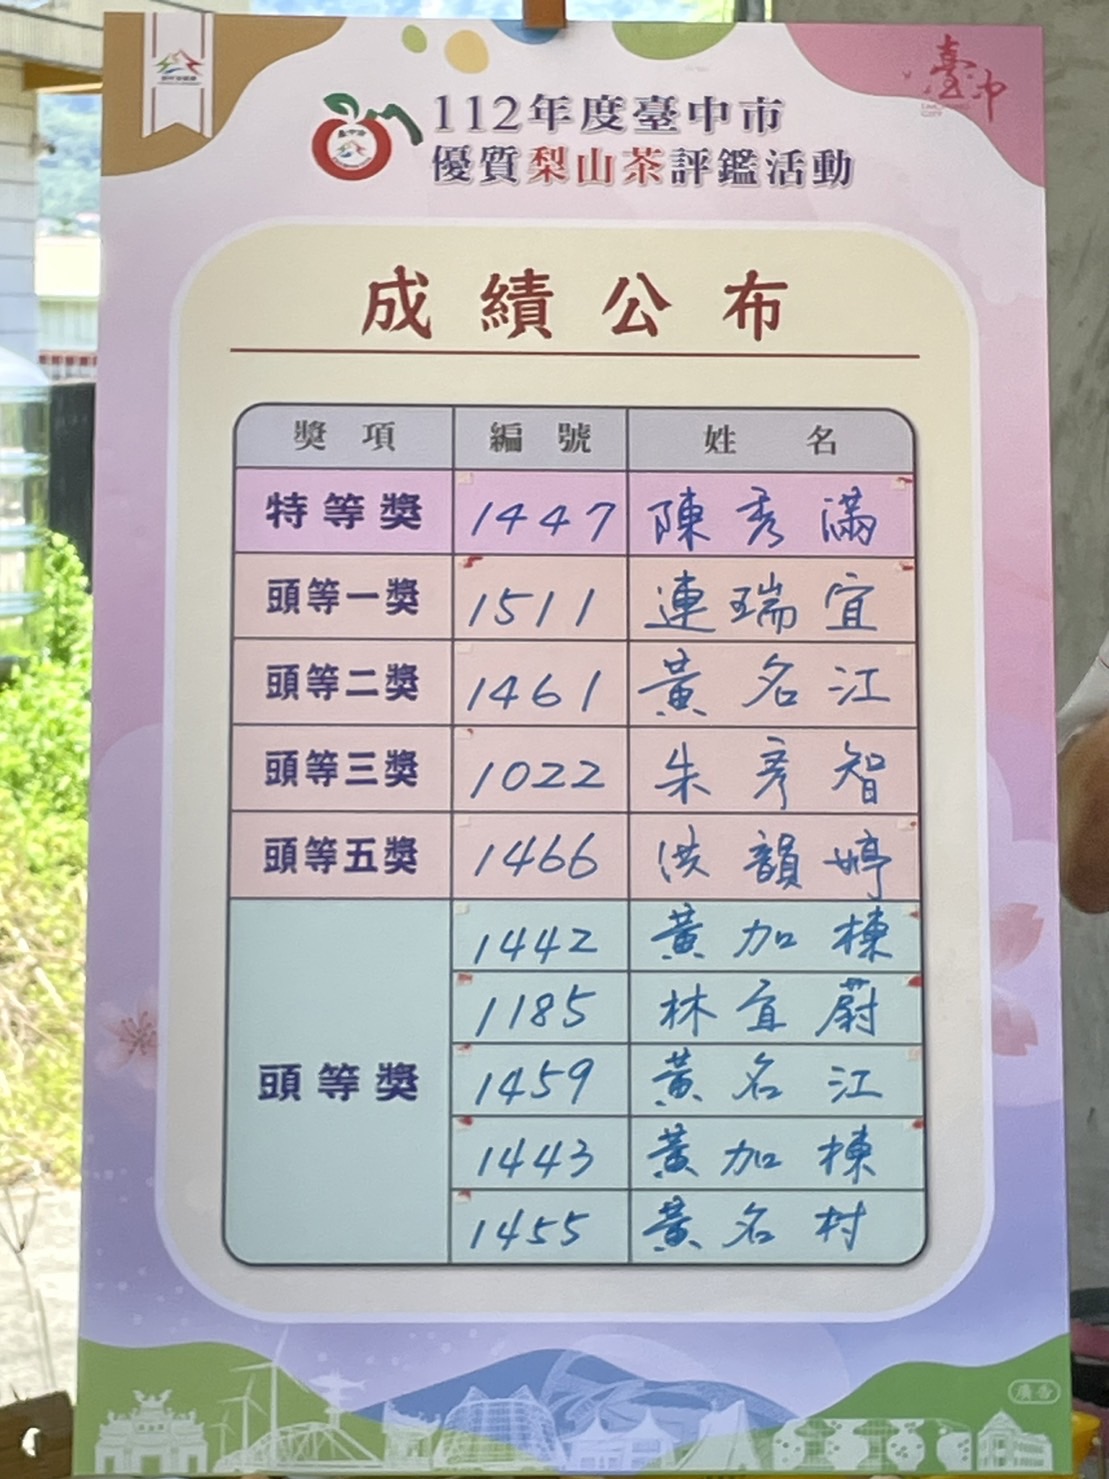 臺中
112年度臺中市
優質梨山茶評鑑活動
成績公布
獎項 編號 姓名
特等獎 1447 陳秀滿
頭等一獎 1511 連瑞宜
頭等二獎 1461 黃名江
頭等三獎 1022 朱彥智
頭等五獎 1466 洪韻婷
頭等獎 1442 黃加棟
1185 林宜蔚
1459 黃名江
1443 黃加棟
1455 黃名村
廣告